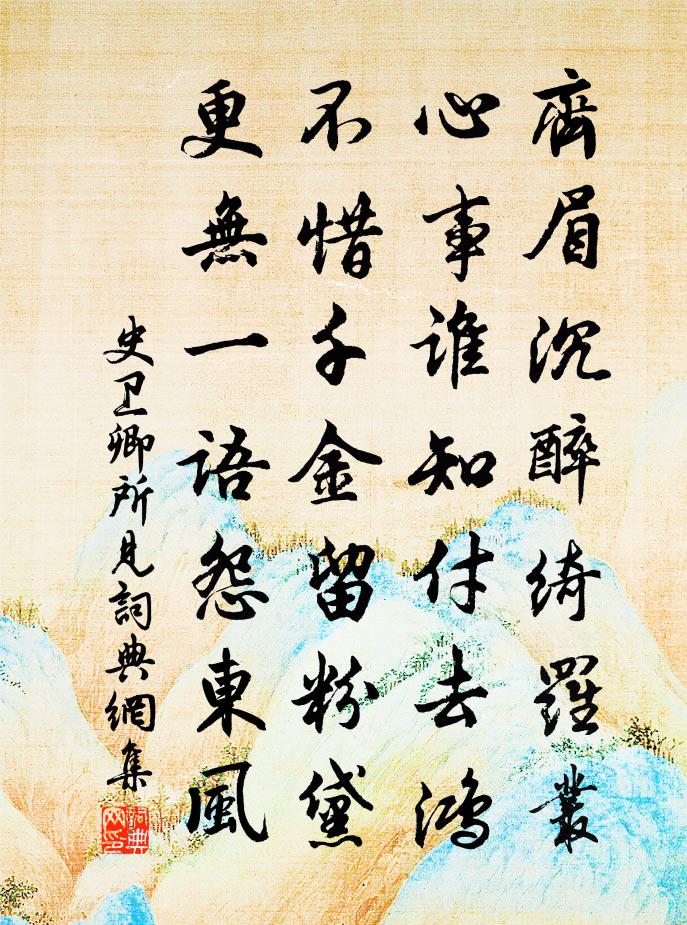 齊眉沉醉綺羅叢
心事誰知付去鴻
不惜千金留粉黛
更無一語怨東風
史卫卿所見詞典網集
詞典網印